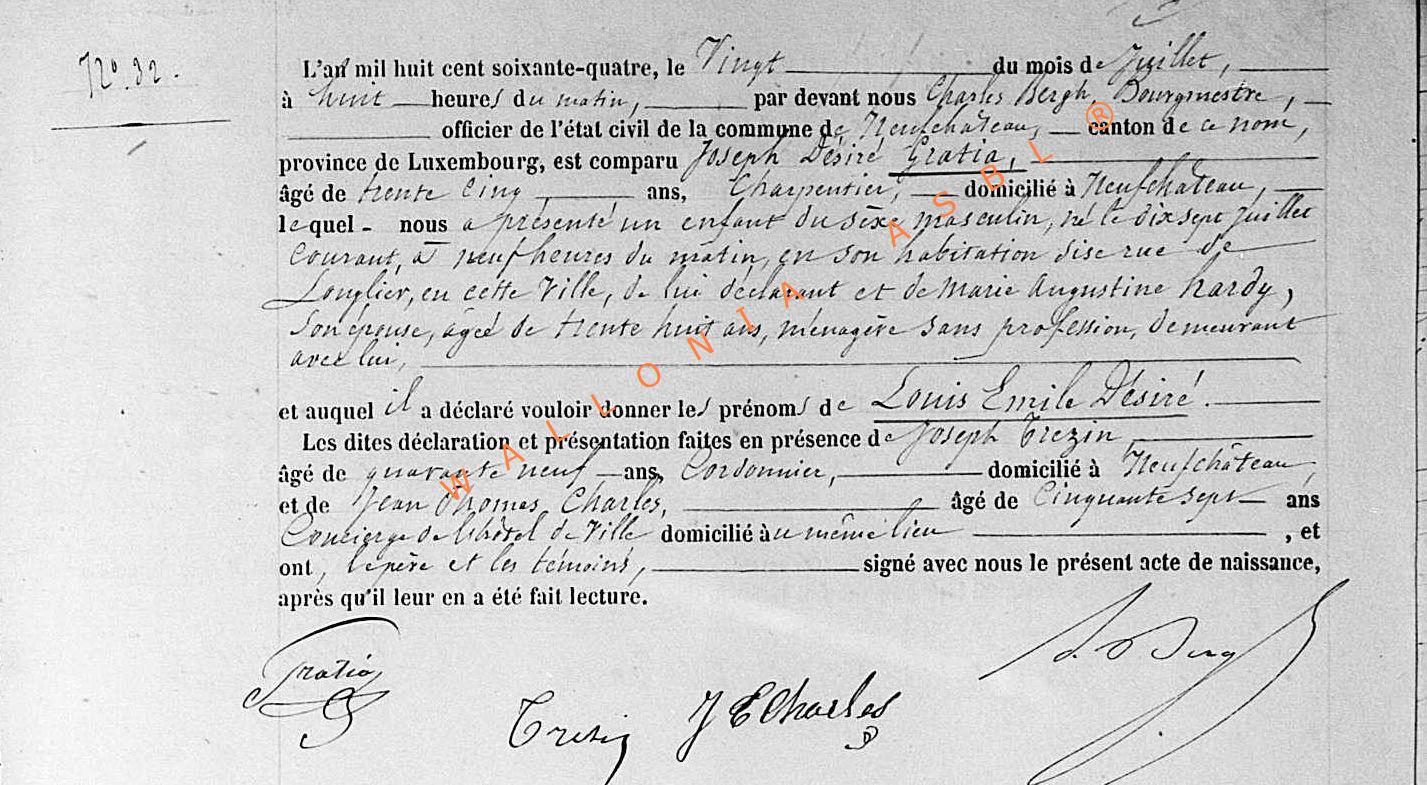 N° 32.
L'an mil huit cent soixante-quatre, le Vingt du mois de Juillet,
à huit heures du matin, par devant nous Charles Bergh, Bourgmestre,
officier de l'état civil de la commune de Neufchâteau, canton de ce nom,
province de Luxembourg, est comparu Joseph Désiré Gratia,
âgé de trente cinq ans, Charpentier, domicilié à Neufchateau,
lequel - nous a présenté un enfant du sèxe masculin, né le dix sept Juillet
courant, à neuf heures du matin, en son habitation sise rue de
Longlier, en cette Ville, de lui déclarant et de Marie Augustine hardy,
son épouse, agée de trente huit ans, ménagère sans profession, demeurant
avec lui,
et auquel il a déclaré vouloir donner les prénoms de Louis Emile Désiré.
Les dites déclaration et présentation faites en présence de Joseph Trezin,
âgé de quarante neuf ans, Cordonnier, domicilié à Neufchâteau
et de Jean Thomas Charles, âgé de Cinquante sept ans
Concierge de l'hôtel de Ville domicilié au même lieu , et
ont, le père et les témoins, signé avec nous le présent acte de naissance,
après qu'il leur en a été fait lecture.
Gratia
Tresin J E Charles
WALLONIA ASBL ®